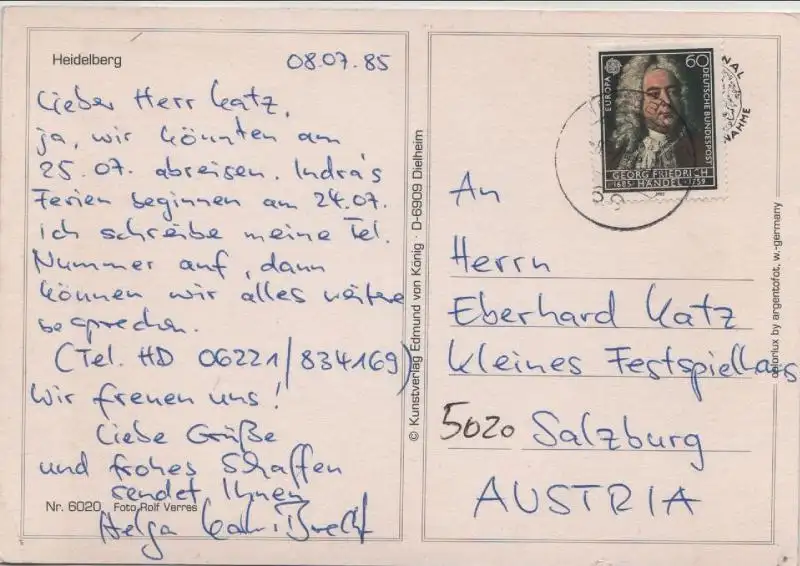 Heidelberg
08.07.85
Lieber Herr Katz,
ja, wir könnten am
25.07. abreisen. Indra's
Ferien beginnen am 24.07.
Ich schreibe meine Tel.
Nummer auf, dann
können wir alles weitere
besprechen.
(Tel. HD 06221/834169)
Wir freuen uns!
Liebe Grüße
und frohes Schaffen
sendet Ihnen
Helga
Nr. 6020 Foto Rolf Verres
© Kunstverlag Edmund von König · D-6909 Dielheim
EUROPA
60
DEUTSCHE BUNDESPOST
GEORG FRIEDRICH
1685 · HÄNDEL · 1759
An
Herrn
Eberhard Katz
kleines Festspielhaus
5020 Salzburg
AUSTRIA
colorlux by argentofot, w.-germany